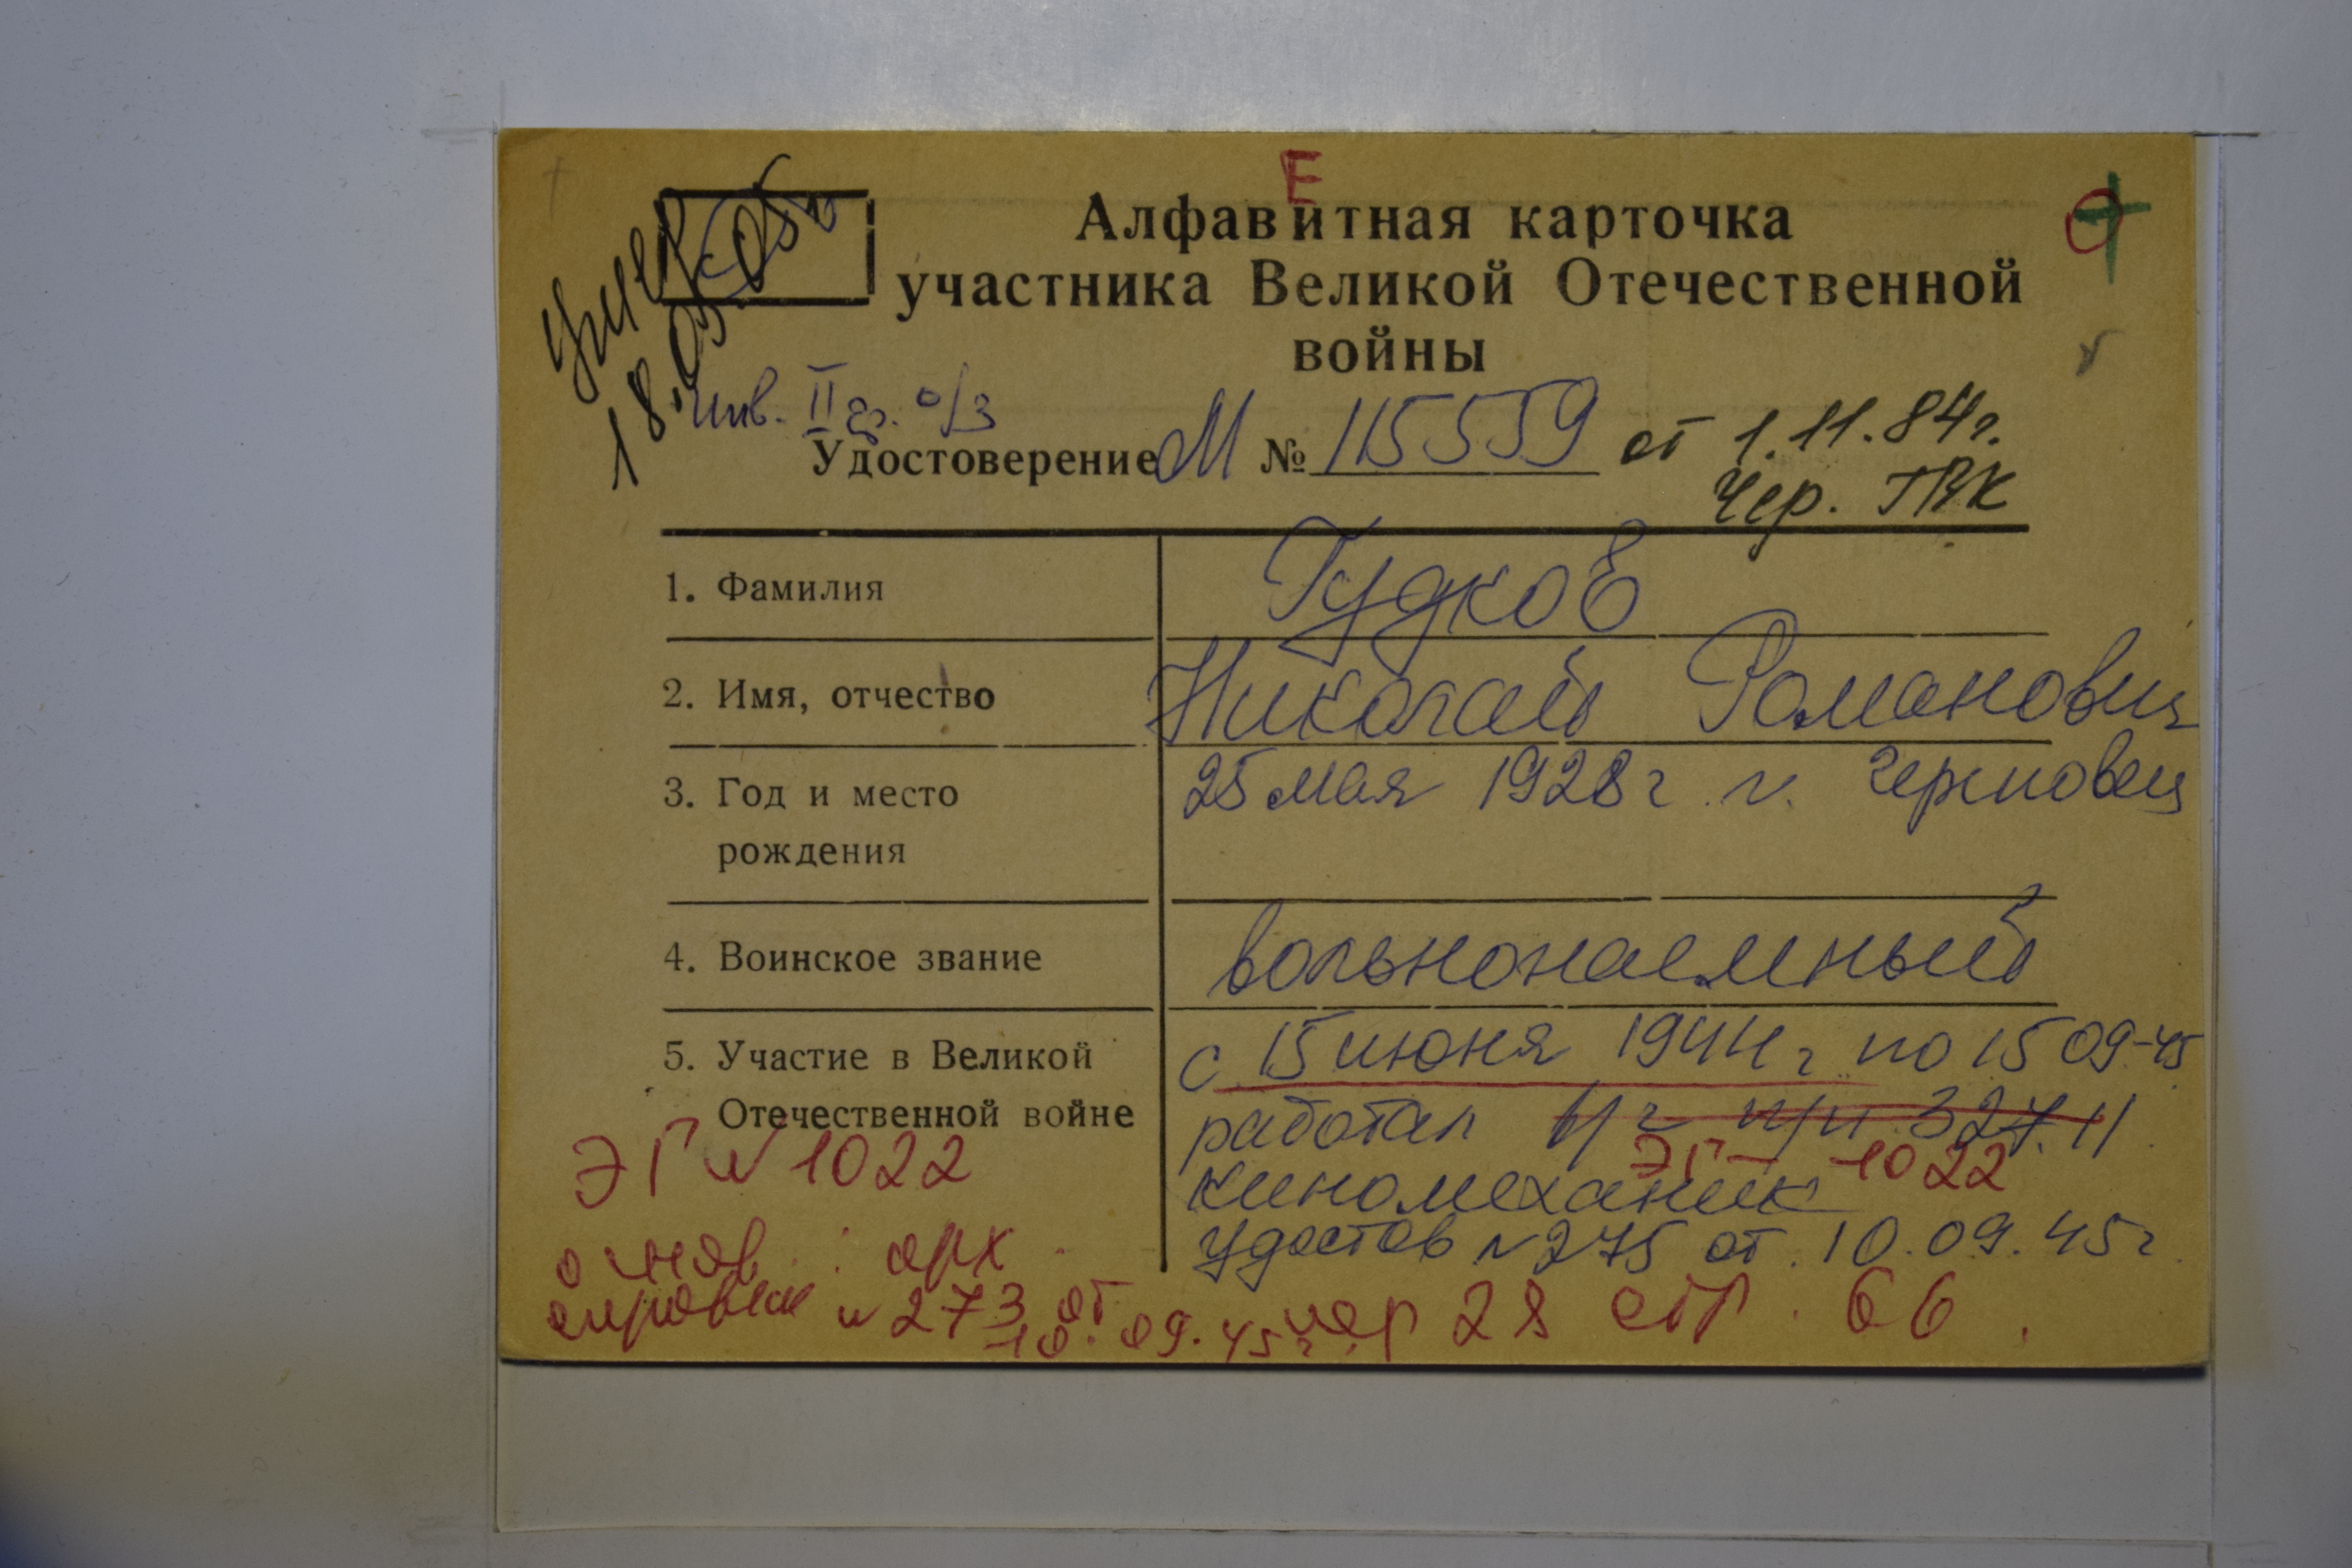 Е
Алфавитная карточка
участника Великой Отечественной
войны
умер
18.05.05г
инв. II гр. о/з
Удостоверение М № 115559 от 1.11.84г.
Чер. ГВК
1. Фамилия Гудков
2. Имя, отчество Николай Романович
3. Год и место 25 мая 1928г. г. Череповец
рождения
4. Воинское звание вольнонаемный
5. Участие в Великой с 15 июня 1944г по 15 09-45
Отечественной войне работал в/ч п/п 32711
ЭГ N 1022 ЭГ - 1022
киномеханик
удостов N 275 от 10.09.45г.
арх
справки N 273 от
10.09.45г. чер 28 стр. 66